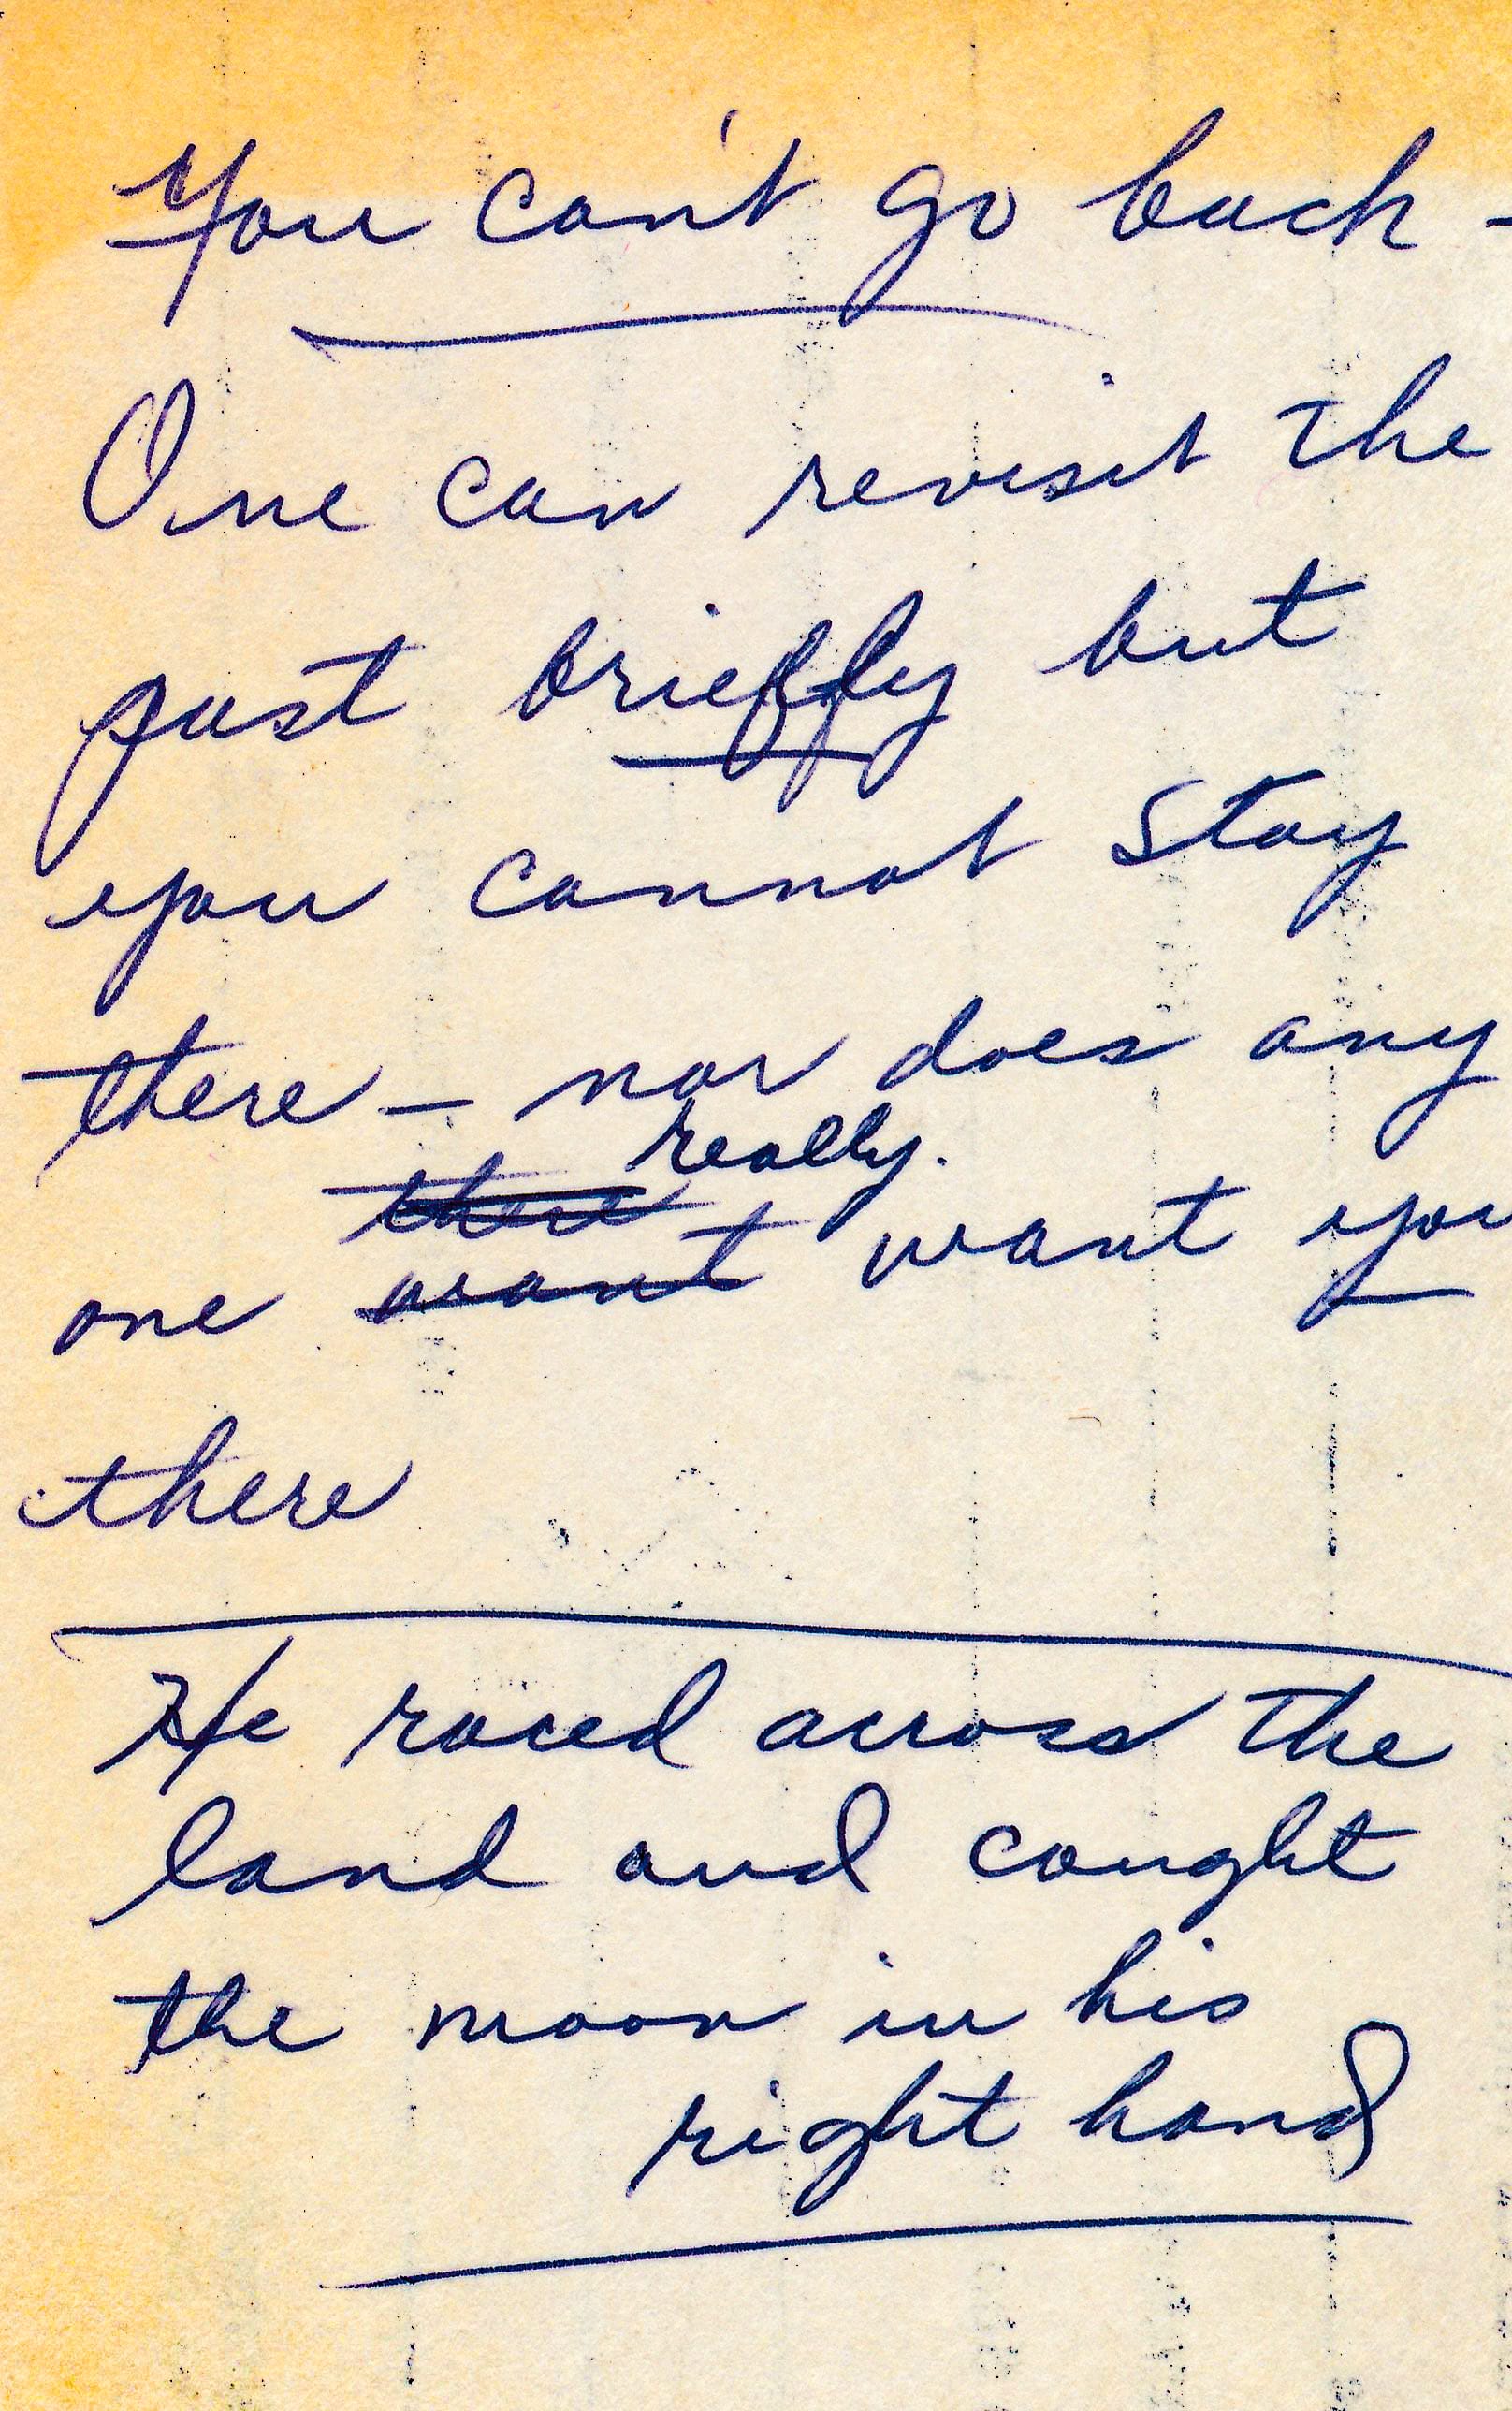 You can't go back -
One can revisit the
past briefly but
you cannot stay
there - nor does any
there really.
one want want you
there
He raced across the
land and caught
the moon in his
right hand